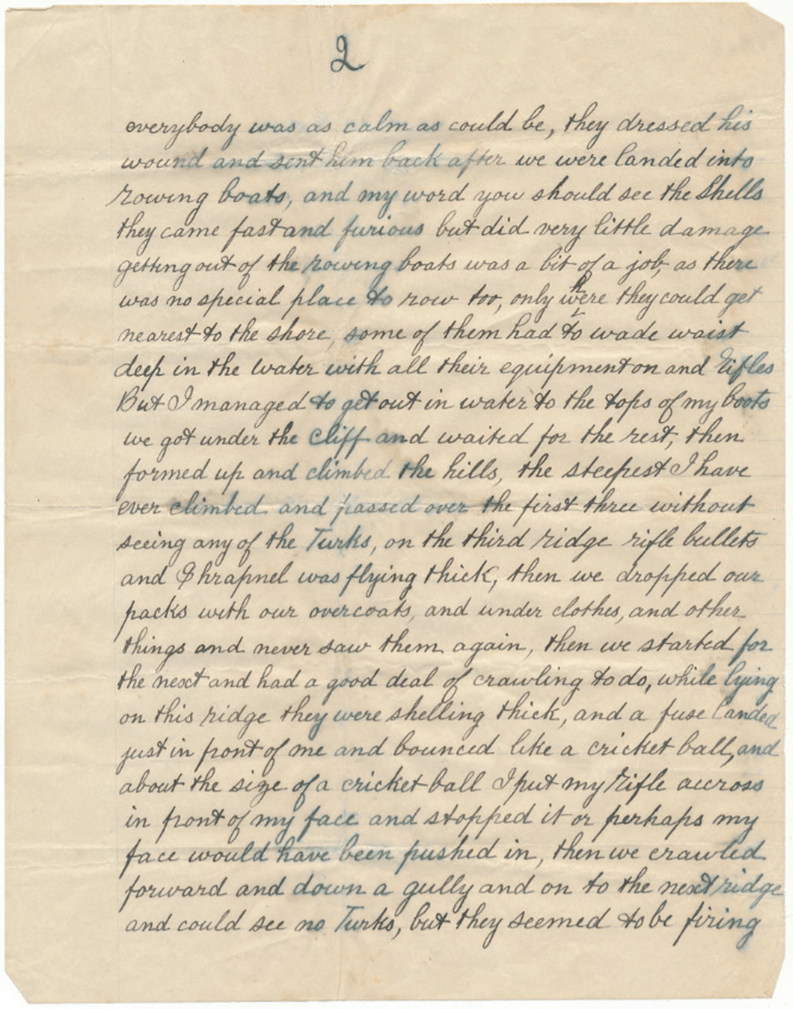 2
everybody was as calm as could be, they dressed his
wound and sent him back after we were landed into
rowing boats, and my word you should see the Shells
they came fast and furious but did very little damage
getting out of the rowing boats was a bit of a job, as there
was no special place to row too, only where they could get
nearest to the shore, some of them had to wade waist
deep in the water with all their equipment on and Rifles
But I managed to get out in water to the tops of my boots
we got under the cliff and waited for the rest, then
formed up and climbed the hills, the steepest I have
ever climbed and passed over the first three without
seeing any of the Turks, on the third ridge rifle bullets
and Shrapnel was flying thick, then we dropped our
packs with our overcoats, and under clothes, and other
things and never saw them again, then we started for
the next and had a good deal of crawling to do, while lying
on this ridge they were shelling thick, and a fuse landed
just in front of me and bounced like a cricket ball, and
about the size of a cricket ball I put my Rifle accross
in front of my face and stopped it or perhaps my
face would have been pushed in, then we crawled
forward and down a gully and on to the next ridge
and could see no Turks, but they seemed to be firing